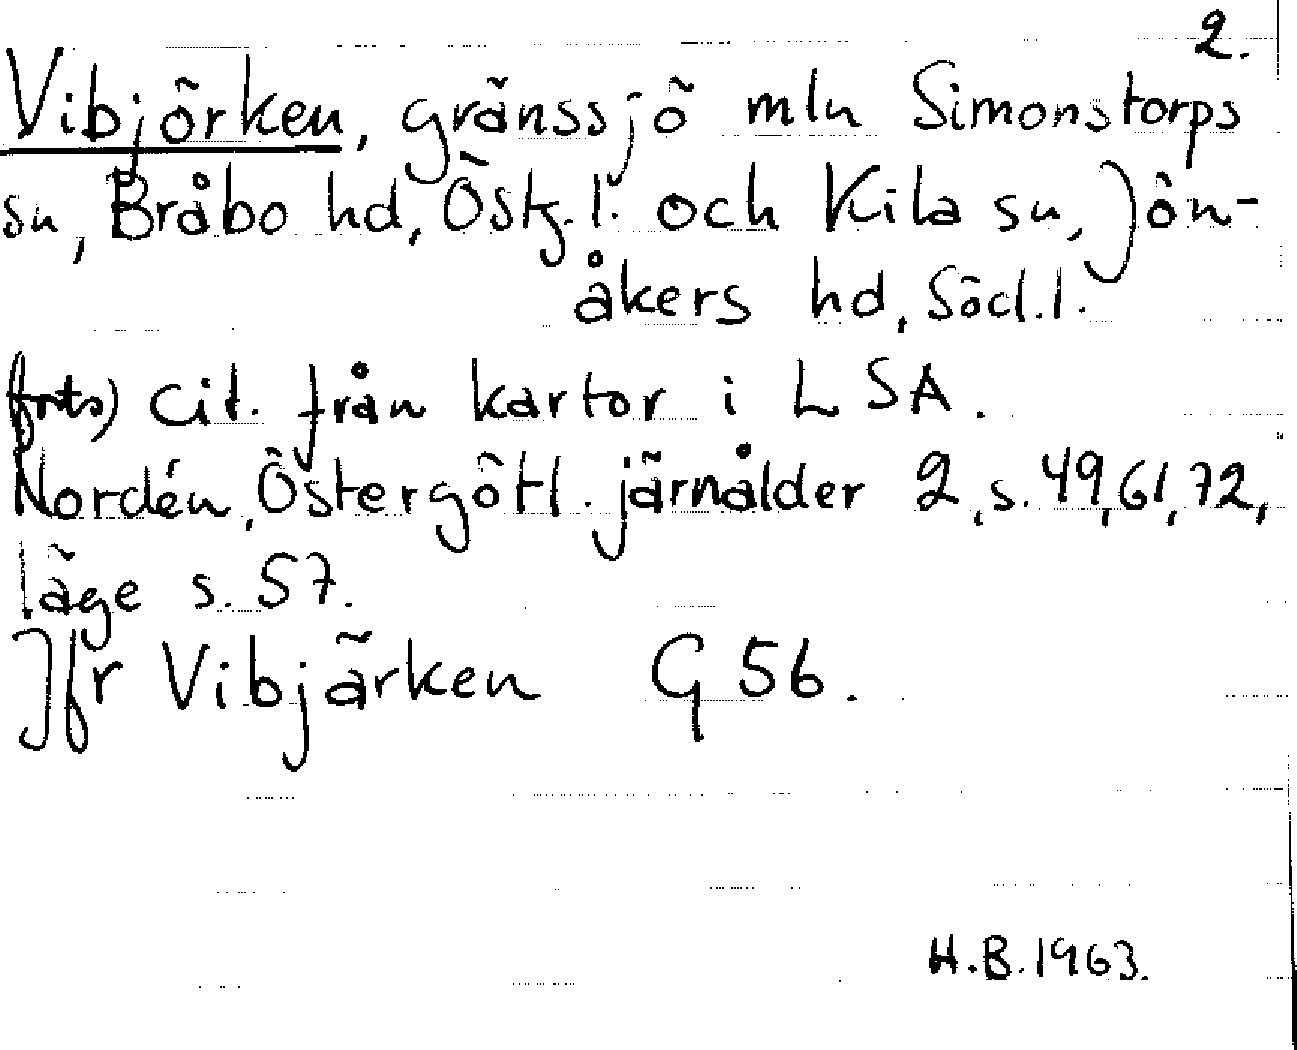 2.
Vibjörken, gränssjö mln Simonstorps
sn, Bråbo hd, Östg. l. och Kila sn, Jön-
åkers hd, Söd. l.
(frts) Cit. från kartor i LSA.
Nordén, Östergötl. järnålder 2, s. 49, 61, 72,
läge s. 57.
Jfr Vibjärken G 56.
H.B. 1963.